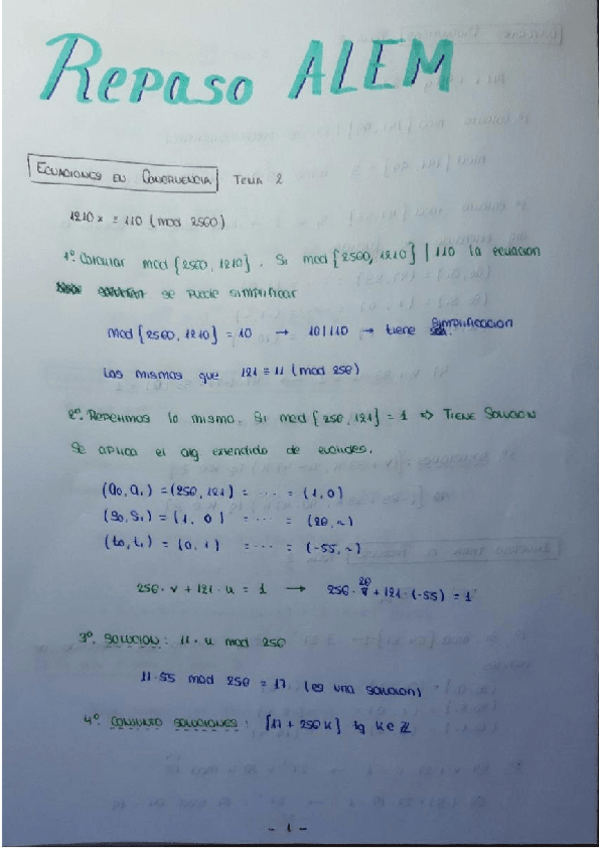 Repaso ALEM
ECUACIONES EN CONGRUENCIA Tema 2
1210x ≡ 110 (mod 2560)
1º Calcular mcd{2560, 1210}. Si mcd{2560, 1210} | 110 la ecuacion
se puede simplificar
mcd{2560, 1210} = 10 → 10|110 → tiene simplificacion
Las mismas que 121 ≡ 11 (mod 256)
2º. Repetimos lo mismo. Si mcd{256, 121} = 1 ⇒ TIENE SOLUCION
Se aplica el alg extendido de euclides.
(a0, a1) = (256, 121) = ... = (1, 0)
(s0, s1) = (1, 0) = ... = (26, ~)
(t0, t1) = (0, 1) = ... = (-55, ~)
256 · v + 121 · u = 1 → 256 · 26 + 121 · (-55) = 1
3º. SOLUCION: 11 · u mod 256
11 · 55 mod 256 = 17 (es una solucion)
4º CONJUNTO SOLUCIONES: {17 + 256k} tq k ∈ ℤ
- 1 -